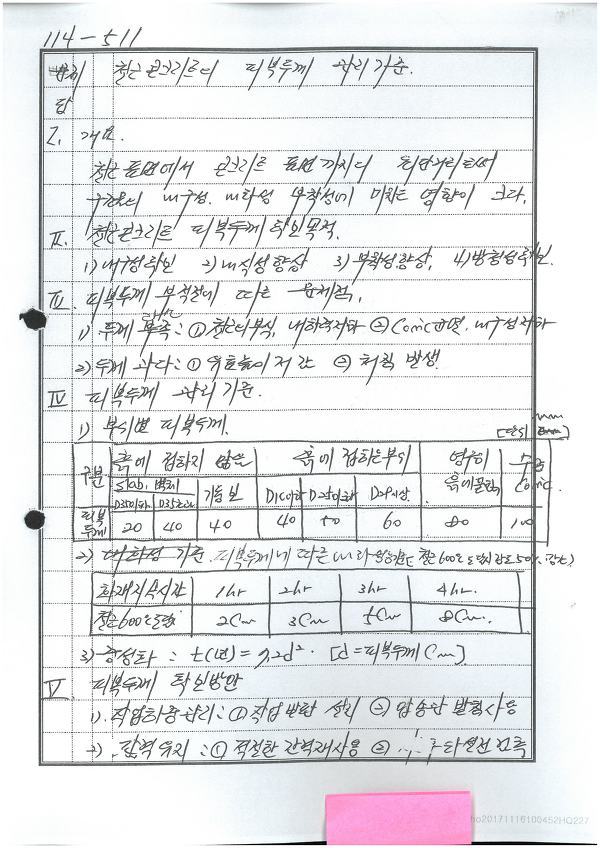 114-511
철근콘크리트의 피복두께 관리기준.
답
I. 개요.
철근표면에서 콘크리트 표면까지의 최단거리로써
구조물의 내구성. 내화성 부착성에 미치는 영향이 크다.
II. 철근콘크리트 피복두께 확인목적.
1) 내구성확인 2) 내식성향상 3) 부착성향상, 4) 방청성확인
III 피복두께 부적절에 따른 문제점,
1) 두께 부족: ① 철근의 부식, 내하력저하 ② Conc균열, 내구성저하
2) 두께 과다: ① 유효높이 저감 ② 처짐 발생.
IV 피복두께 관리기준.
1) 부위별 피복두께. [단위 mm]
구분 흙에 접하지 않는 흙에 접하는부위 영구히 흙에묻힘 수중 Conc.
slab, 벽체 기둥 보 D16이하 D25이하 D29이상
D35이하 D35초과
피복두께 20 40 40 40 50 60 80 100
2) 내화성 기준. 피복두께에 따른 철근 600℃ 도달시 강도 50% 감소)
화재지속시간 1hr 2hr 3hr 4hr.
철근600℃도달 2cm 3cm 5cm 8cm.
3) 중성화 : t(년) = 7.2d². [d=피복두께 Cm]
V 피복두께 확인방안
1). 작업하중관리: ① 작업발판 설치 ② 압송관 받침사용
2) 간격유지: ① 적절한 간격재사용 ② 타설전 검측
ho20171116100452HQ227